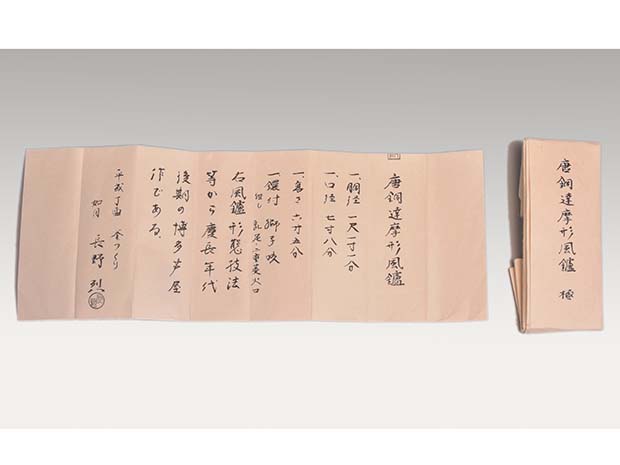 唐銅達摩形風鑪
一、胴径 一尺一寸一分
一、口径 七寸八分
一、高さ 六寸五分
一鐶付 獅子咬
但し 乳足・二重菱火口
右風鑪形態技法
等から慶長年代
後期の博多芦屋
作である。
平成丁丑 釜つくり
如月 長野 烈
唐銅達摩形風鑪 極